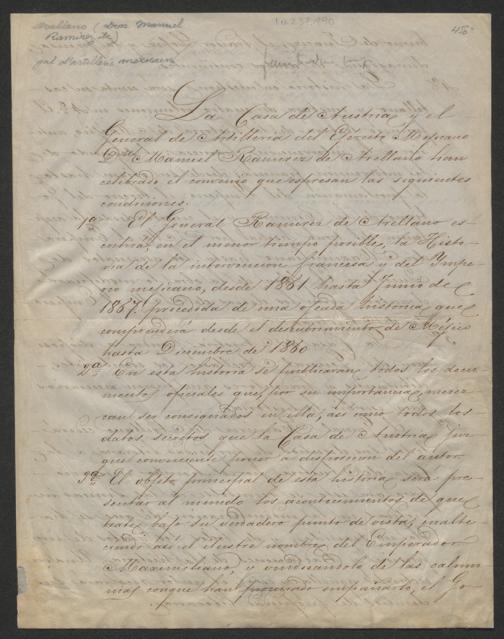 Arellano (Don Manuel
Ramirez de)
gal d'artillerie mexicain
10.237.990
45
La Casa de Austria y el
General de Artilleria del Ejército Mejicano
Don Manuel Ramirez de Arellano han
celebrado el convenio que espresan las siguientes
condiciones.
1a El General Ramirez de Arellano es-
cribirá en el menor tiempo posible, la Histo-
ria de la intervencion francesa y del Ympe-
rio mejicano, desde 1861 hasta Junio de
1867, precedida de una ojeada historica que
comprenderá desde el descubrimiento de Méjico
hasta Diciembre de 1860
2a En esta historia se publicarán todos los docu-
mentos oficiales que, por su importancia, merez-
can ser consignados en ella; así como todos los
datos secretos que la Casa de Austria juz-
gue conveniente poner a disposicion del autor.
3a El objeto principal de esta historia será pre-
sentar al mundo los acontecimientos de que
trate, bajo su verdadero punto de vista, enalte-
ciendo así el Ilustre nombre del Emperador
Maximiliano, y vindicandolo de las calum-
nias conque han procurado empañarlo, el Go-